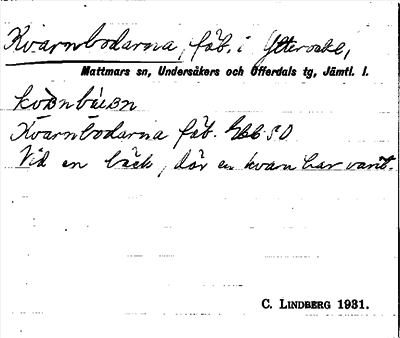 Kvarnbodarna, fäb. i Ytterocke,
Mattmars sn, Undersåkers och Offerdals tg, Jämtl. l.
Kvarnbodarna fäb.
Vid en bäck, där en kvarn har varit.
C. LINDBERG 1931.